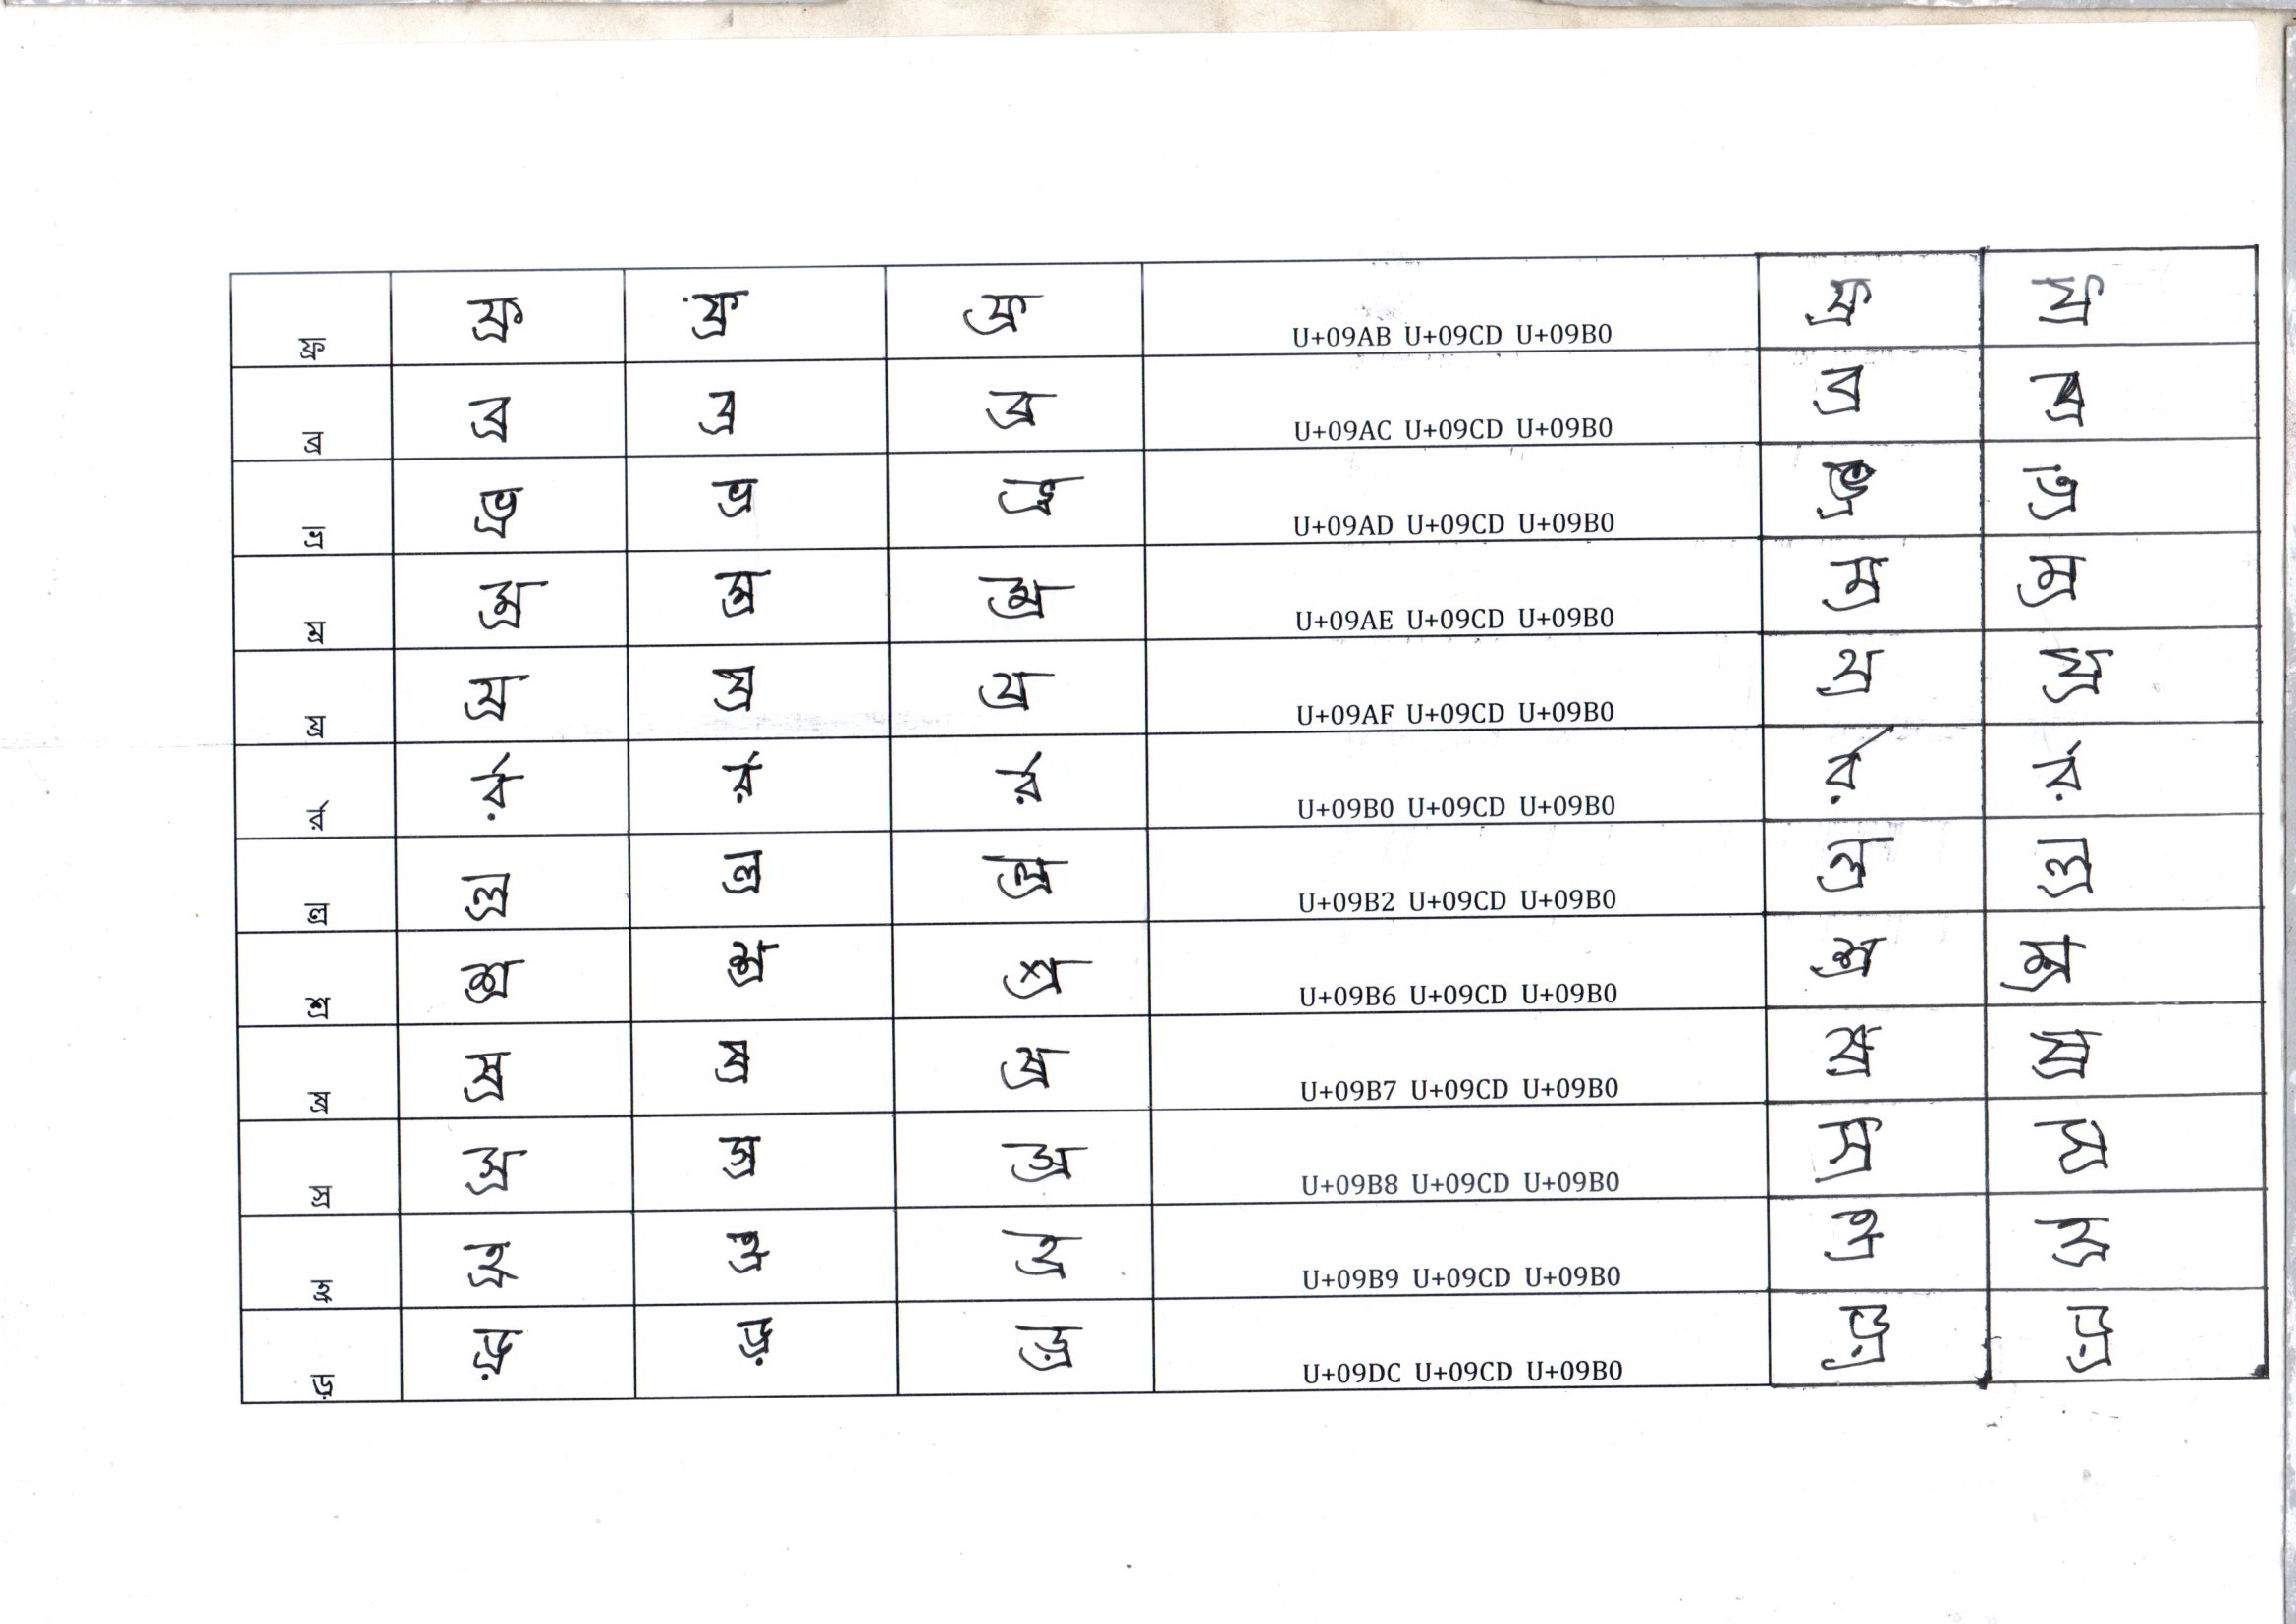 ফ্র ফ্র ফ্র ফ্র U+09AB U+09CD U+09B0 ফ্র ফ্র
ব্র ব্র ব্র ব্র U+09AC U+09CD U+09B0 ব্র ব্র
ভ্র ভ্র ভ্র ভ্র U+09AD U+09CD U+09B0 ভ্র ভ্র
ম্র ম্র ম্র ম্র U+09AE U+09CD U+09B0 ম্র ম্র
য্র য্র য্র য্র U+09AF U+09CD U+09B0 য্র য্র
র্র র্র র্র র্র U+09B0 U+09CD U+09B0 র্র র্র
ল্র ল্র ল্র ল্র U+09B2 U+09CD U+09B0 ল্র ল্র
শ্র শ্র শ্র শ্র U+09B6 U+09CD U+09B0 শ্র শ্র
ষ্র ষ্র ষ্র ষ্র U+09B7 U+09CD U+09B0 ষ্র ষ্র
স্র স্র স্র স্র U+09B8 U+09CD U+09B0 স্র স্র
হ্র হ্র হ্র হ্র U+09B9 U+09CD U+09B0 হ্র হ্র
ড়্র ড়্র ড়্র ড়্র U+09DC U+09CD U+09B0 ড়্র ড়্র